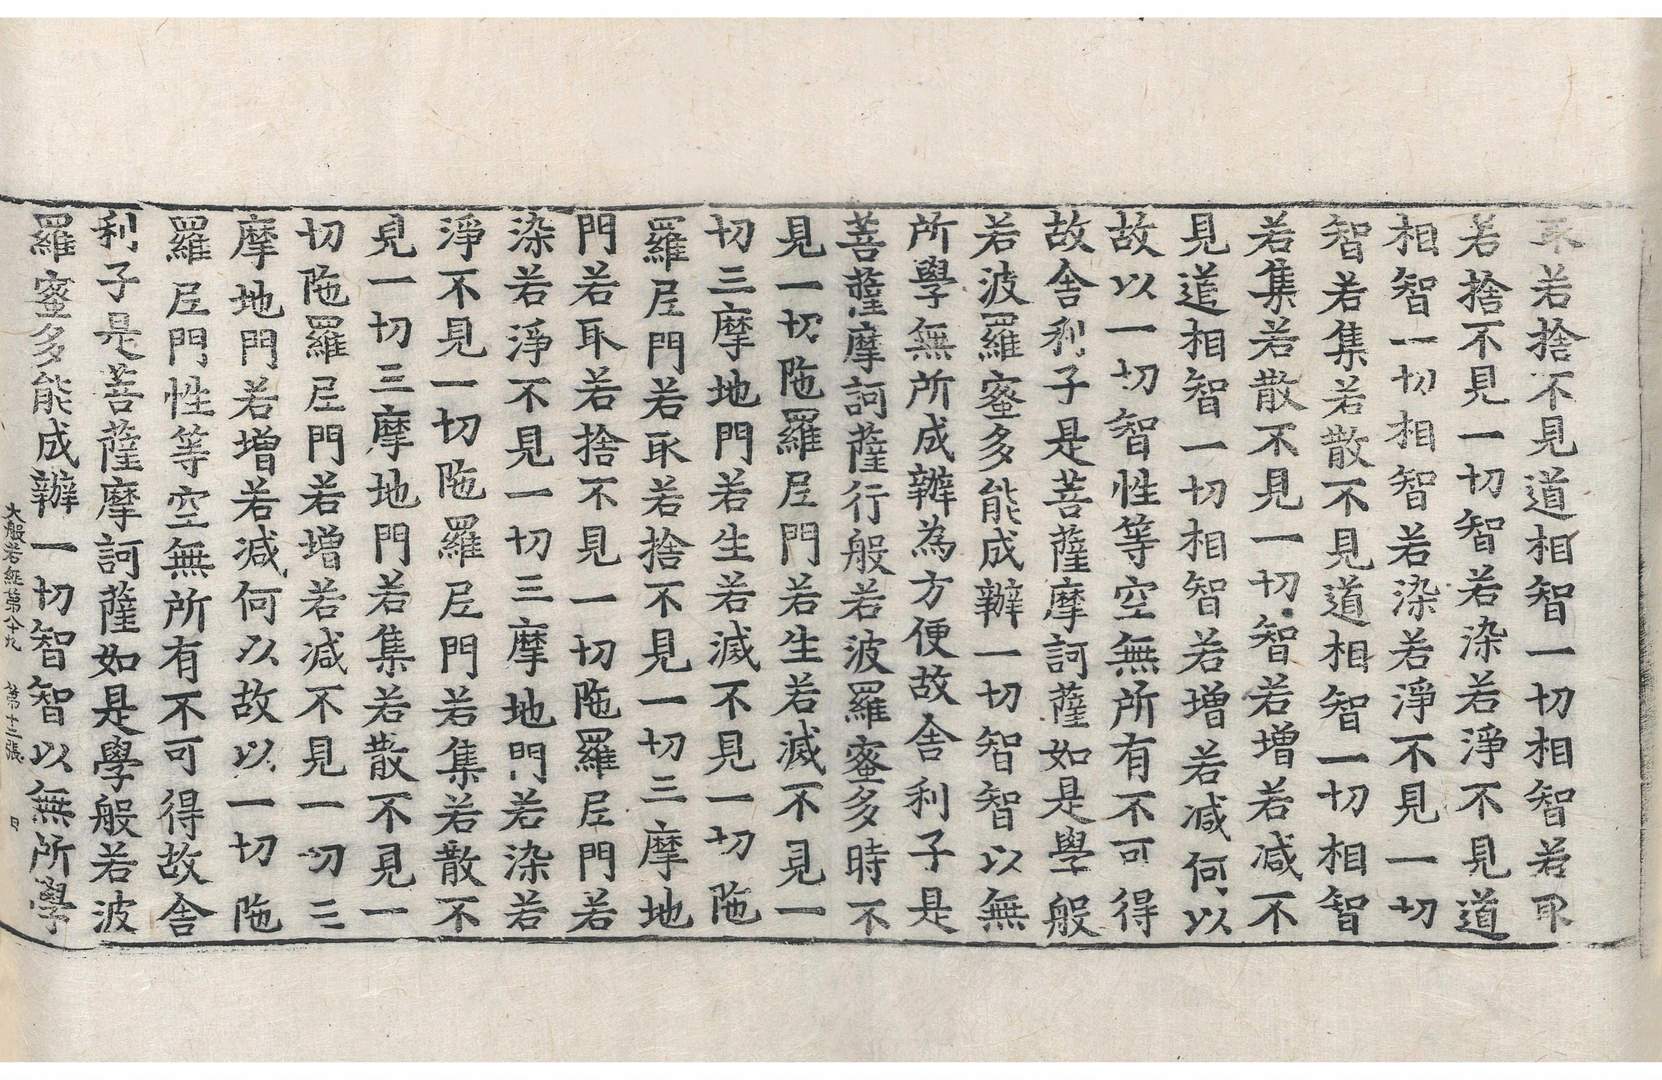 取若捨不見道相智一切相智若取
若捨不見一切智若染若淨不見道
相智一切相智若染若淨不見一切
智若集若散不見道相智一切相智
若集若散不見一切智若增若減不
見道相智一切相智若增若減何以
故以一切智性等空無所有不可得
故舍利子是菩薩摩訶薩如是學般
若波羅蜜多能成辦一切智智以無
所學無所成辦為方便故舍利子是
菩薩摩訶薩行般若波羅蜜多時不
見一切陁羅尼門若生若滅不見一
切三摩地門若生若滅不見一切陁
羅尼門若取若捨不見一切三摩地
門若取若捨不見一切陁羅尼門若
染若淨不見一切三摩地門若染若
淨不見一切陁羅尼門若集若散不
見一切三摩地門若集若散不見一
切陁羅尼門若增若減不見一切三
摩地門若增若減何以故以一切陁
羅尼門性等空無所有不可得故舍
利子是菩薩摩訶薩如是學般若波
羅蜜多能成辦一切智智以無所學
大般若經第八十九 第十二張 日